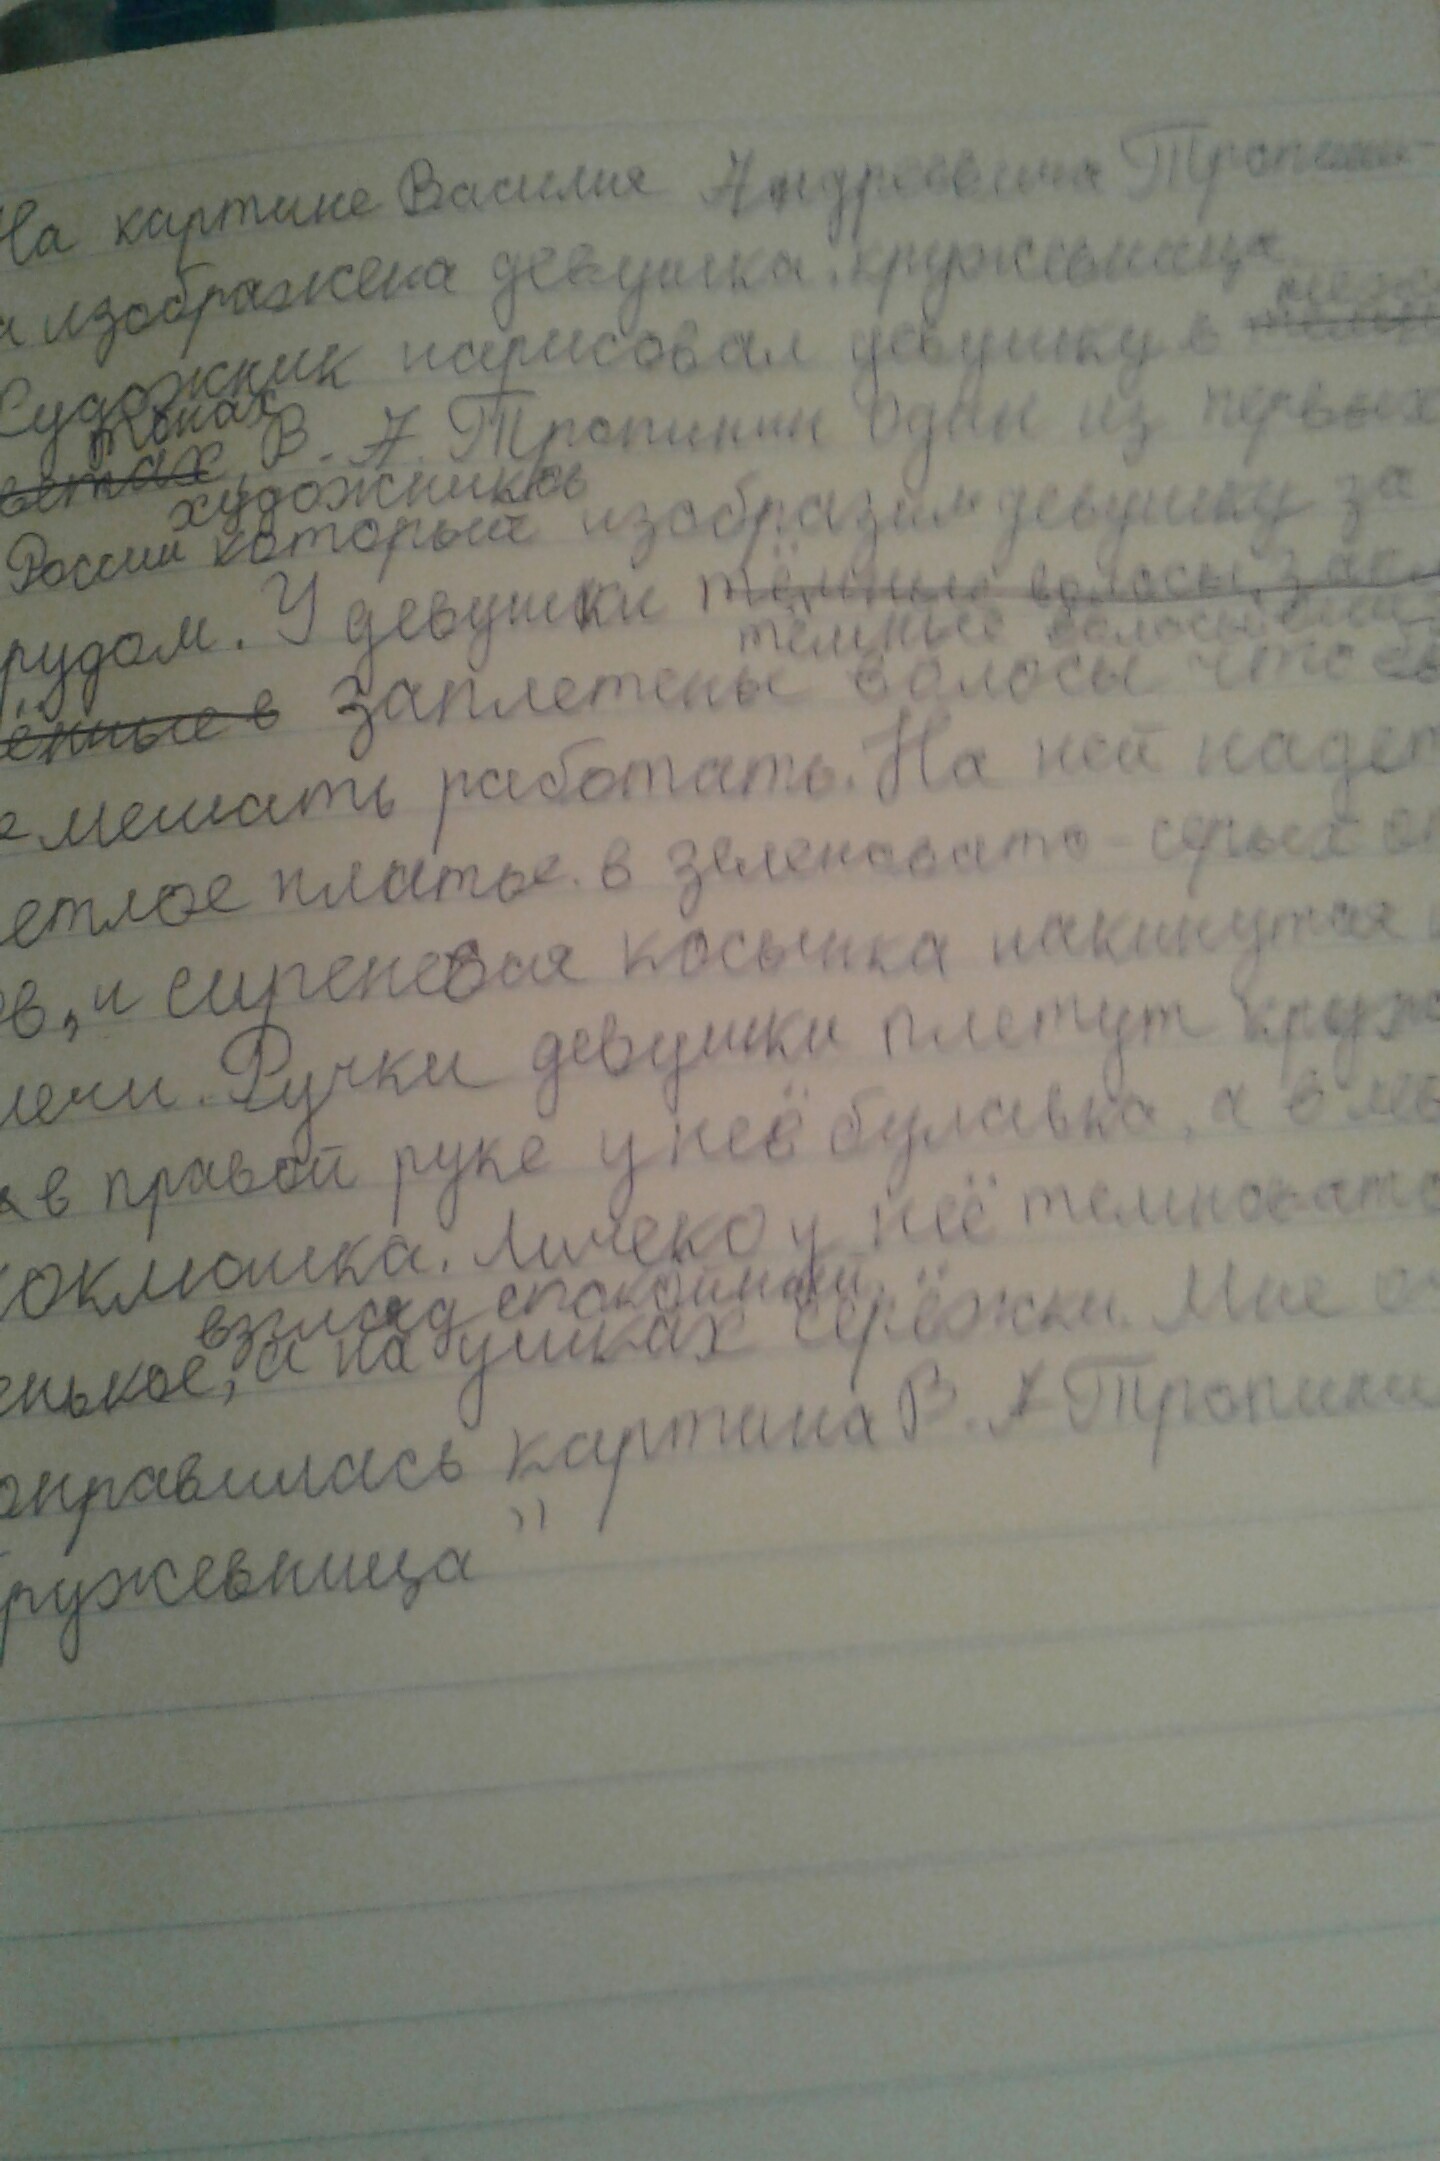 На картине Василия Андреевича Тропини-
а изображена девушка. кружевница
Художник нарисовал девушку в
тонах
ветах, В. А. Тропинин один из первых
художников
России который изобразил девушку за
рудом. У девушки тёмные волосы, запл
тёмные волосы
ённые в заплетены волосы что бы
е мешать работать. На ней надет
етлое платье. в зеленовато-серых от
ов, и сиреневая косынка накинутая
лечи. Ручки девушки плетут круж
а в правой руке у неё булавка, а в лев
коклюшка. Личеко у неё темновато
взгляд спокойный,
енькое, а на ушках серёжки. Мне оч
онравилась картина В. А Тропини
"
ружевница